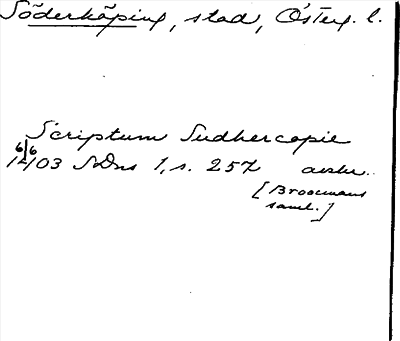 Söderköping, stad, Österg. l.
Scriptum Sudhercopie
6/6
1403 SDns 1, s. 257 avskr.
[Broocmans
saml.]